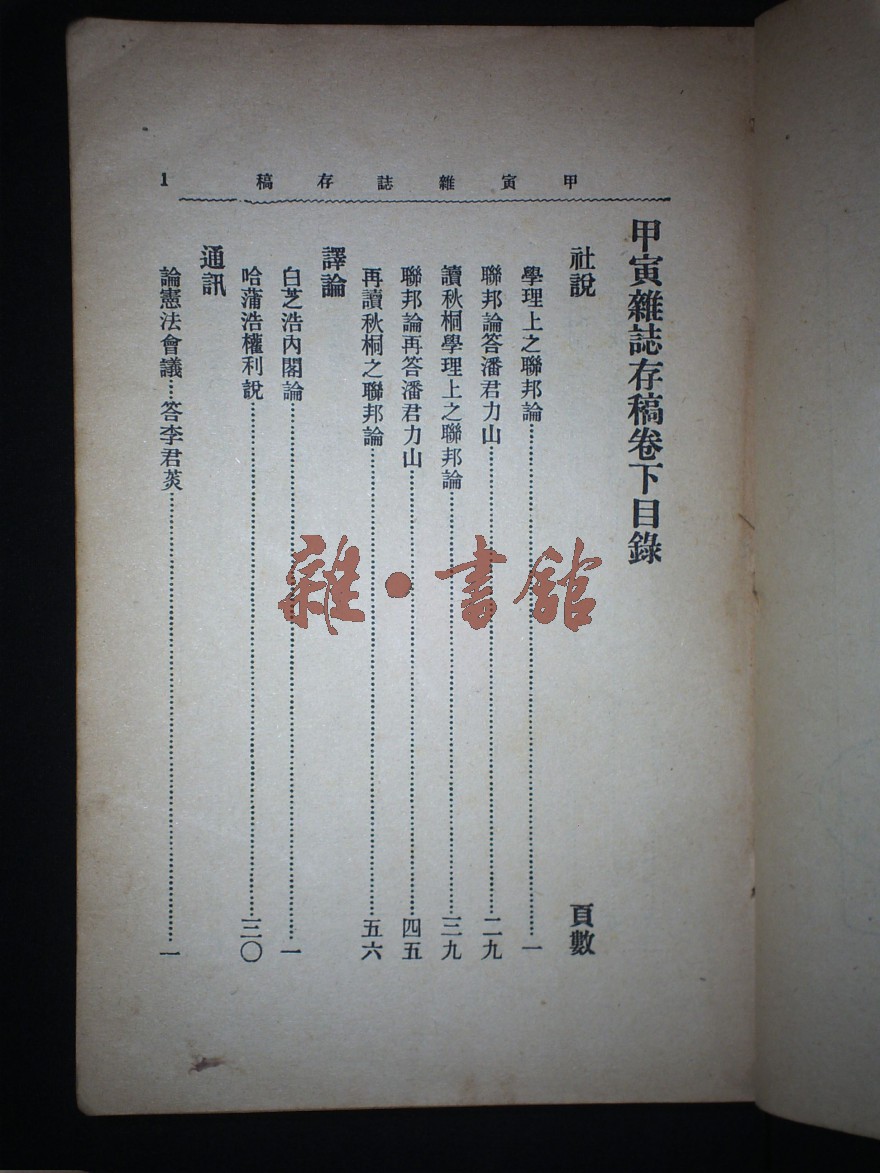 甲寅雜誌存稿
1
甲寅雜誌存稿卷下目錄
社說 頁數
學理上之聯邦論……一
聯邦論答潘君力山……二九
讀秋桐學理上之聯邦論……三九
聯邦論再答潘君力山……四五
再讀秋桐之聯邦論……五六
譯論
白芝浩內閣論……一
哈蒲浩權利說……三〇
通訊
論憲法會議……答李君菼……一
雜·書館